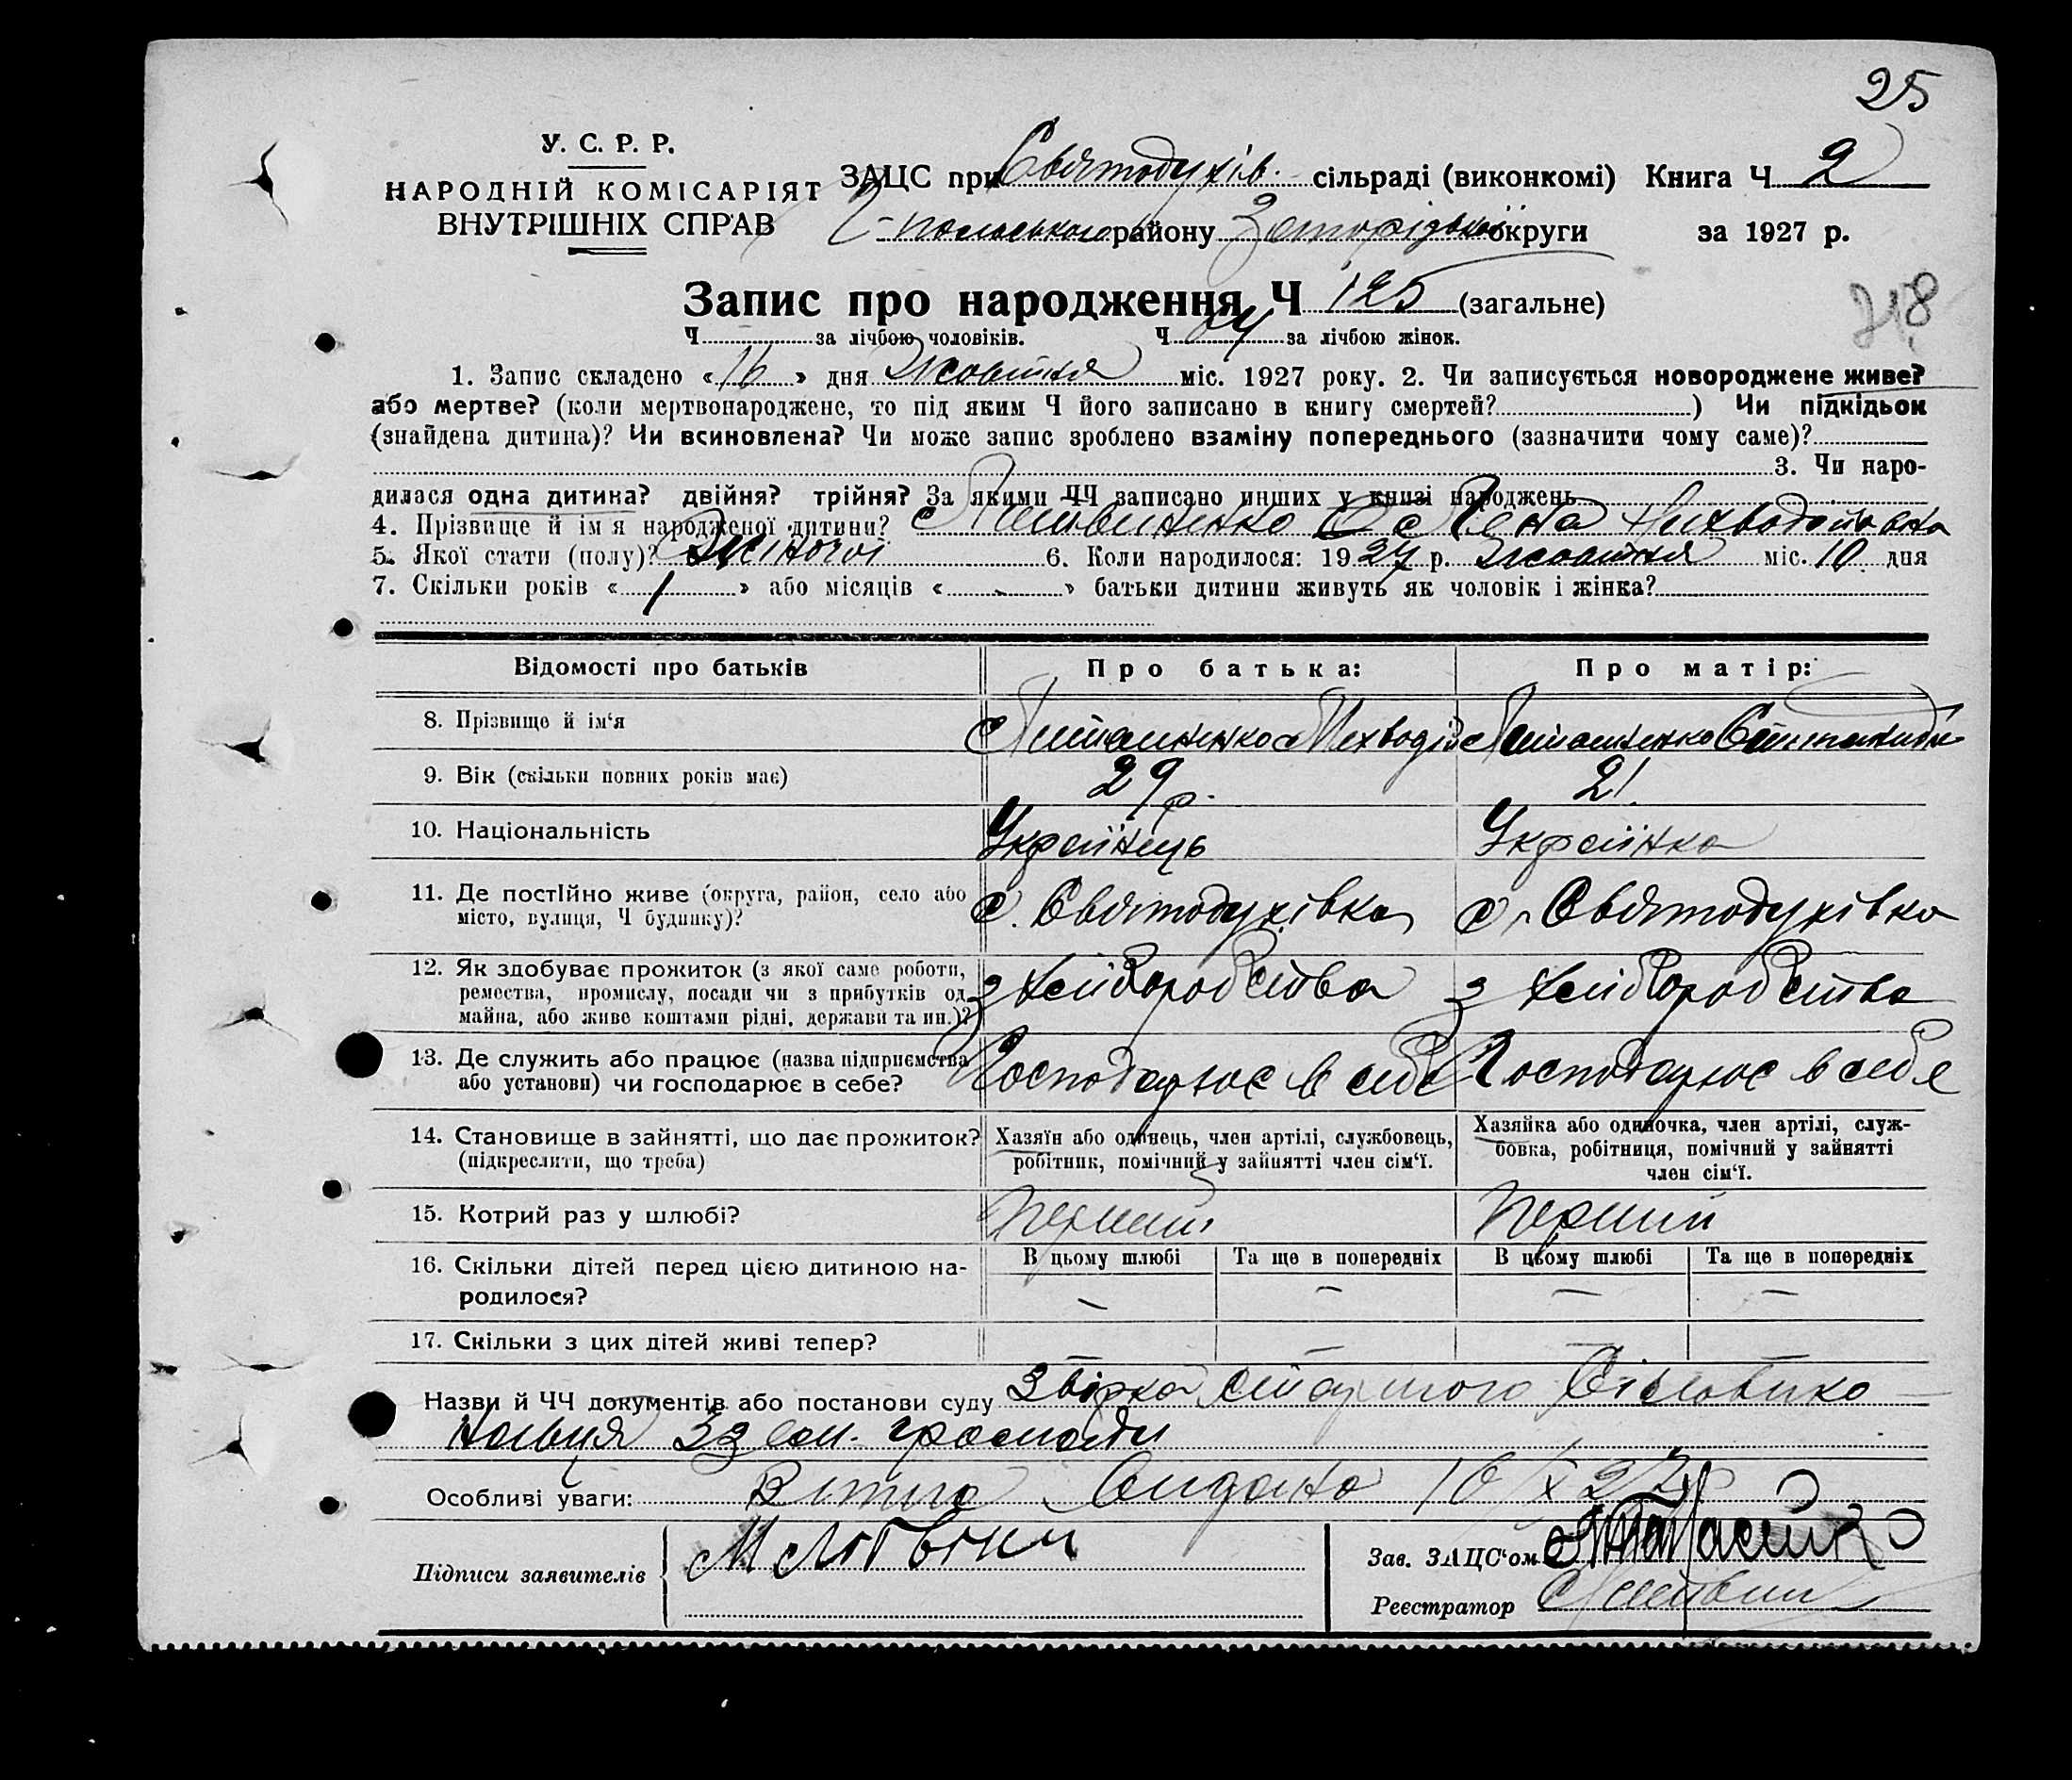 25
У. С. Р. Р.
НАРОДНІЙ КОМІСАРІЯТ
ВНУТРІШНІХ СПРАВ
ЗАЦС при Святодухів. сільраді (виконкомі) Книга Ч 2
району Запорізької округи за 1927 р.
Запис про народження Ч 125 (загальне)
218
Ч за лічбою чоловіків. Ч 64 за лічбою жінок.
1. Запис складено «16» дня Жовтня міс. 1927 року. 2. Чи записується новороджене живе?
або мертве? (коли мертвонароджене, то під яким Ч його записано в книгу смертей?) Чи підкідьок
(знайдена дитина)? Чи всиновлена? Чи може запис зроблено взаміну попереднього (зазначити чому саме)?
3. Чи наро-
дилася одна дитина? двійня? трійня? За якими ЧЧ записано инших у книзі народжень
4. Прізвище й ім'я народженої дитини?
5. Якої стати (полу)? Жіночої 6. Коли народилося: 1927 р. Жовтня міс. 10 дня
7. Скільки років «1» або місяців «-» батьки дитини живуть як чоловік і жінка?
Відомості про батьків Про батька: Про матір:
8. Прізвище й ім'я
9. Вік (скільки повних років має) 29 р. 21.
10. Національність Українець Українка
11. Де постійно живе (округа, район, село або с. Святодухівка с. Святодухівка
місто, вулиця, Ч будинку)?
12. Як здобуває прожиток (з якої саме роботи, З хліборобства З хліборобства
ремества, промислу, посади чи з прибутків од
майна, або живе коштами рідні, держави та ин.)?
13. Де служить або працює (назва підприємства Господарює в себе Господарює в себе
або установи) чи господарює в себе?
14. Становище в зайнятті, що дає прожиток? Хазяїн або одинець, член артілі, службовець, Хазяйка або одиночка, член артілі, служ-
(підкреслити, що треба) робітник, помічний у зайнятті член сім'ї. бовка, робітниця, помічний у зайнятті
член сім'ї.
15. Котрий раз у шлюбі? Перший Перший
В цьому шлюбі Та ще в попередніх В цьому шлюбі Та ще в попередніх
16. Скільки дітей перед цією дитиною на- — — — —
родилося?
17. Скільки з цих дітей живі тепер? — — — —
Назви й ЧЧ документів або постанови суду
громади
Особливі уваги: Витяг видано
Підписи заявителів М Литвин Зав. ЗАЦС'ом
Реєстратор